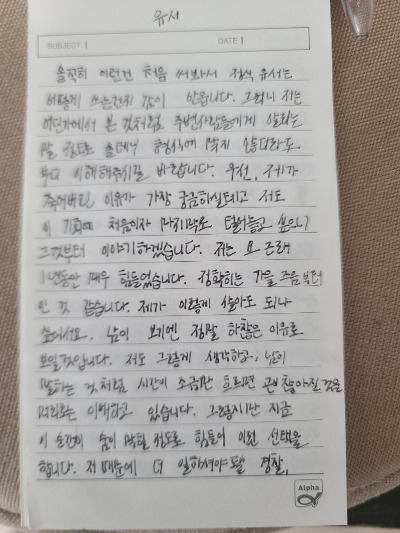 유서
SUBJECT
DATE
솔직히 이런건 처음 써봐서 정식 유서는
어떻게 쓰는건지 감이 안옵니다. 그러니 저는
어딘가에서 본 것처럼 주변사람들에게 알리는
말 정도로 쓸테니 형식에 맞지 않더라도
부디 이해해주시길 바랍니다. 우선, 제가
죽어버린 이유가 가장 궁금하실테고 저도
이 기회에 처음이자 마지막으로 털어놓고 싶으니
그것부터 이야기하겠습니다. 저는 요 근래
1년동안 매우 힘들었습니다. 정확히는 가을 즈음부터
인 것 같습니다. 제가 이렇게 살아도 되나
싶어서요. 남이 보기엔 정말 하찮은 이유로
보일것입니다. 저도 그렇게 생각하고, 남이
말하는 것처럼 시간이 조금만 흐르면 괜찮아질 것을
머리로는 이해하고 있습니다. 그렇지만 지금
이 순간이 숨이 막힐 정도로 힘들어 이런 선택을
합니다. 저 때문에 더 일하셔야 될 경찰,
Alpha